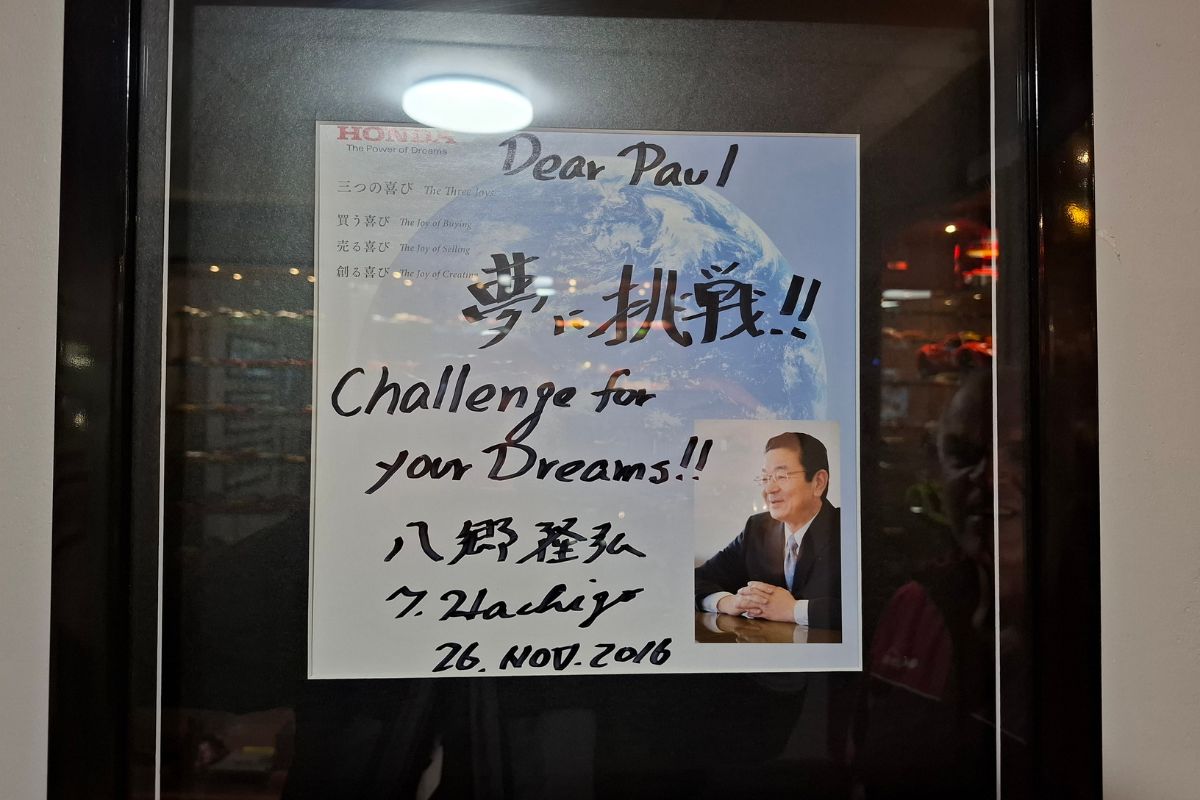 HONDA
The Power of Dreams
Dear Paul
三つの喜び The Three Joys
買う喜び The Joy of Buying
売る喜び The Joy of Selling
創る喜び The Joy of Creating
夢に挑戦!!
Challenge for
your Dreams!!
八郷隆弘
T. Hachigo
26. NOV. 2016